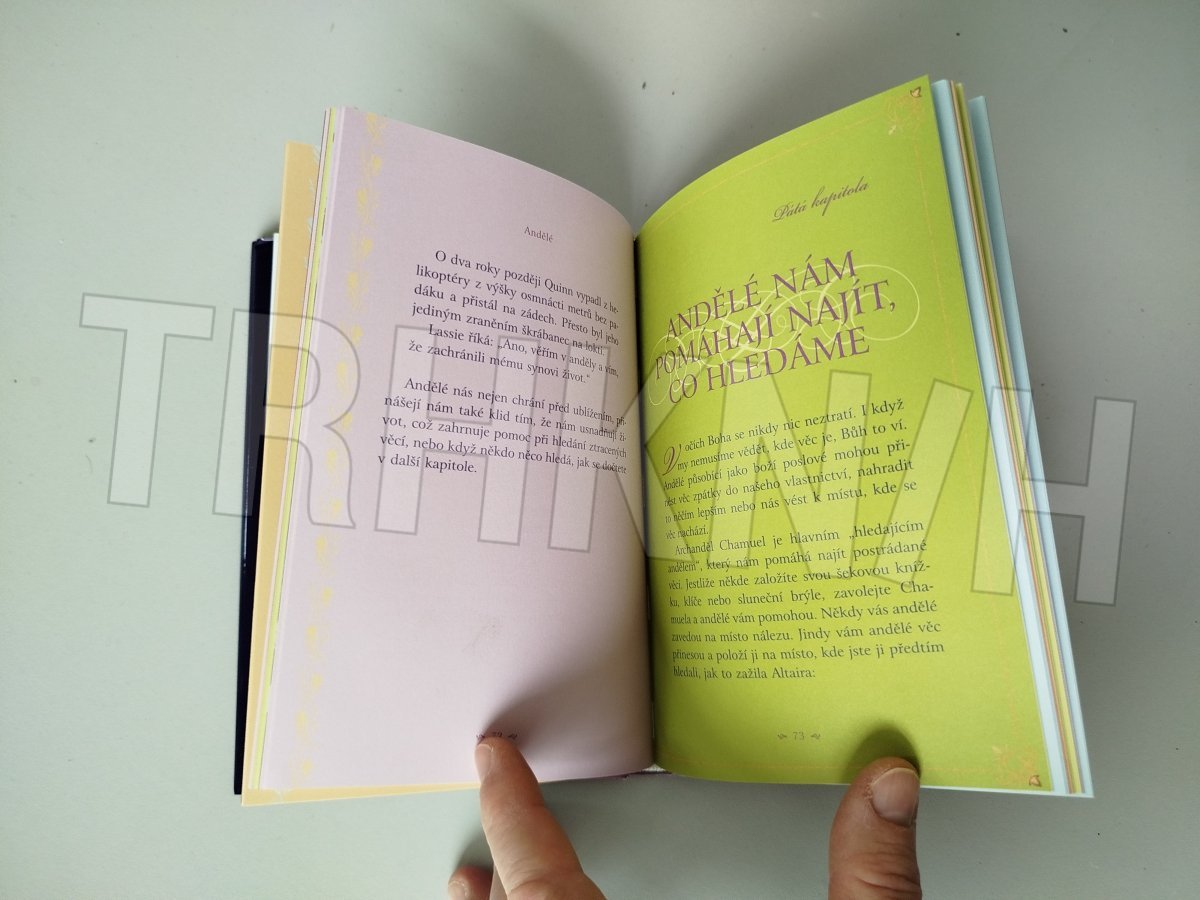 Andělé
O dva roky později Quinn vypadl z he-
likoptéry z výšky osmnácti metrů bez pa-
dáku a přistál na zádech. Přesto byl jeho
jediným zraněním škrábanec na lokti.
Lassie říká: „Ano, věřím v anděly a vím,
že zachránili mému synovi život.“
Andělé nás nejen chrání před ublížením, při-
nášejí nám také klid tím, že nám usnadňují ži-
vot, což zahrnuje pomoc při hledání ztracených
věcí, nebo když někdo něco hledá, jak se dočtete
v další kapitole.
72
Pátá kapitola
ANDĚLÉ NÁM
POMÁHAJÍ NAJÍT,
CO HLEDÁME
V očích Boha se nikdy nic neztratí. I když
my nemusíme vědět, kde věc je, Bůh to ví.
Andělé působící jako boží poslové mohou při-
nést věc zpátky do našeho vlastnictví, nahradit
to něčím lepším nebo nás vést k místu, kde se
věc nachází.
Archanděl Chamuel je hlavním „hledajícím
andělem“, který nám pomáhá najít postrádané
věci. Jestliže někde založíte svou šekovou kníž-
ku, klíče nebo sluneční brýle, zavolejte Cha-
muela a andělé vám pomohou. Někdy vás andělé
zavedou na místo nálezu. Jindy vám andělé věc
přinesou a položí ji na místo, kde jste ji předtím
hledali, jak to zažila Altaira:
73
TRHKNIH